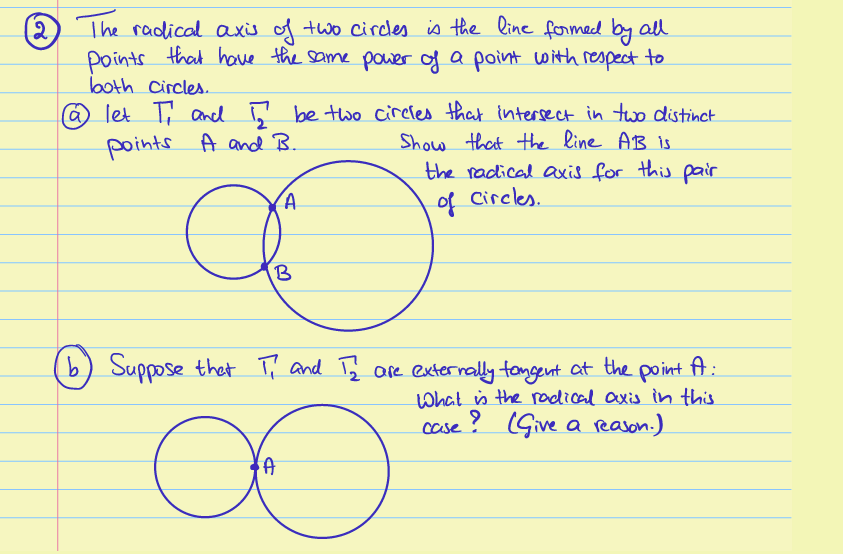 ② The radical axis of two circles is the line formed by all
points that have the same power of a point with respect to
both circles.
ⓐ let Γ₁ and Γ₂ be two circles that intersect in two distinct
points A and B. Show that the line AB is
the radical axis for this pair
of circles.
A
B
ⓑ Suppose that Γ₁ and Γ₂ are externally tangent at the point A:
What is the radical axis in this
case? (Give a reason.)
A